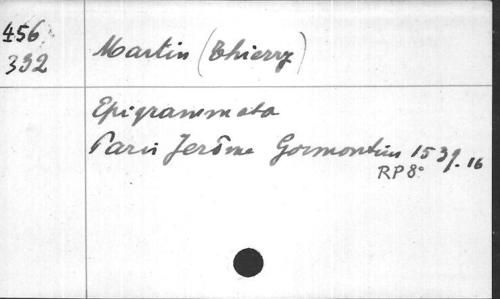 456
332
Martin (Thierry)
Epigrammata
Paris Jerôme Gormontius 1539. 16
RP 8°